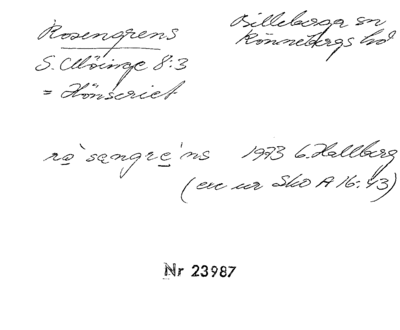 Rosengrens
Billeberga sn
Rönnebergs hd
S. Möinge 8:3
= Hönseriet
ro`sangre´ns 1973 G. Hallberg
(exc ur SkO A 16:43)
Nr 23987